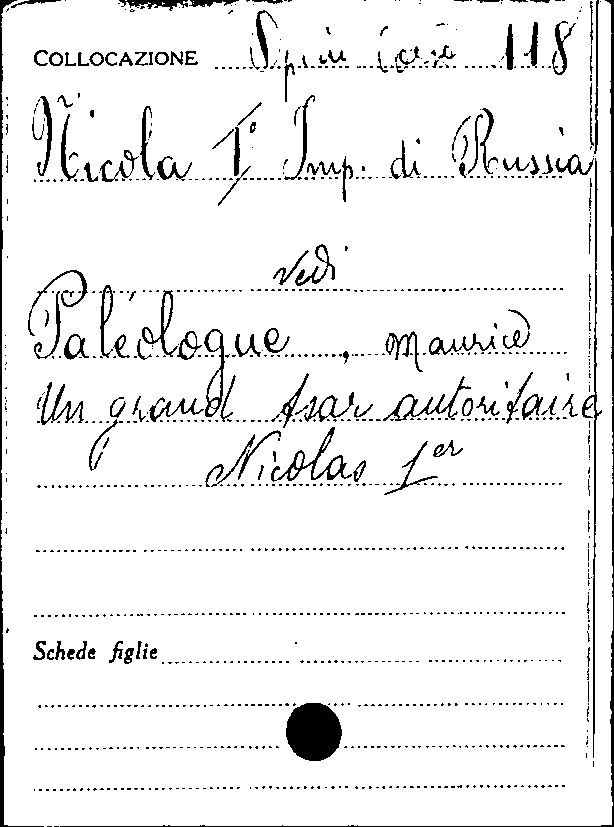 COLLOCAZIONE 118
Nicola I° Imp. di Russia
vedi
Paléologue, Maurice
Un grand tsar autoritaire
Nicolas 1er
Schede figlie